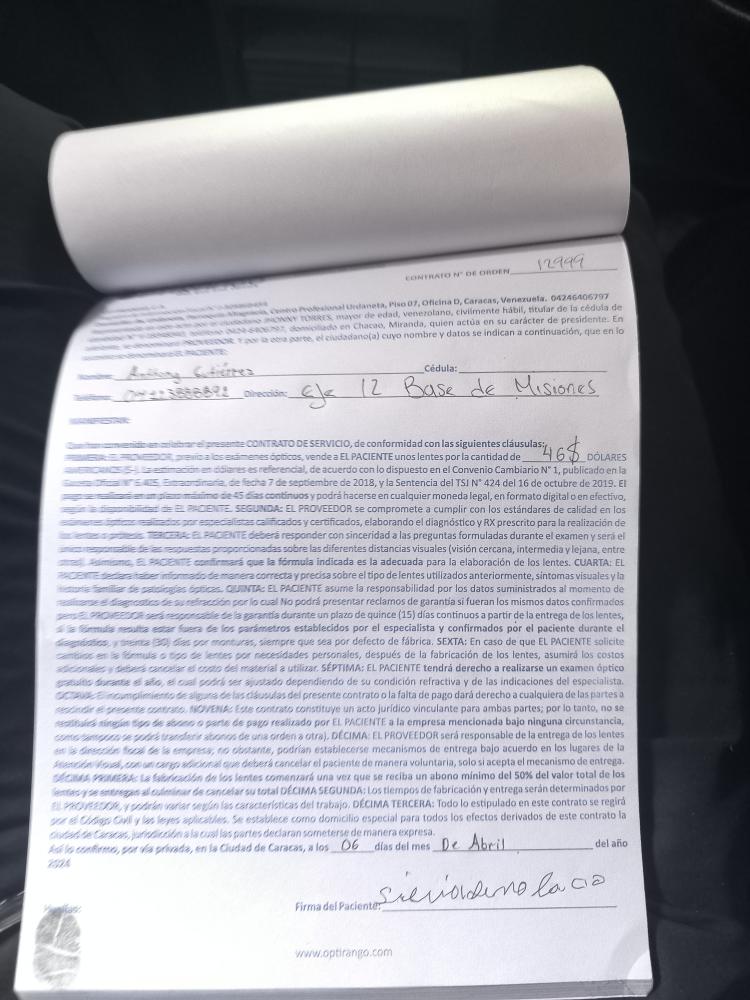 CONTRATO N° DE ORDEN 12999
Centro Profesional Urdaneta, Piso 07, Oficina D, Caracas, Venezuela. 04246406797
JHONNY TORRES, mayor de edad, venezolano, civilmente hábil, titular de la cédula de
0424-6406797, domiciliado en Chacao, Miranda, quien actúa en su carácter de presidente. En
PROVEEDOR. Y por la otra parte, el ciudadano(a) cuyo nombre y datos se indican a continuación, que en lo
EL PACIENTE:
Anthony Gutiérrez Cédula:
Dirección: Eje 12 Base de Misiones
MANIFIESTAN:
Que han convenido en celebrar el presente CONTRATO DE SERVICIO, de conformidad con las siguientes cláusulas:
PRIMERA: EL PROVEEDOR, previo a los exámenes ópticos, vende a EL PACIENTE unos lentes por la cantidad de 46$ DÓLARES
AMERICANOS ($-). La estimación en dólares es referencial, de acuerdo con lo dispuesto en el Convenio Cambiario N° 1, publicado en la
Gaceta Oficial N° 6.405, Extraordinaria, de fecha 7 de septiembre de 2018, y la Sentencia del TSJ N° 424 del 16 de octubre de 2019. El
pago se realizará en un plazo máximo de 45 días continuos y podrá hacerse en cualquier moneda legal, en formato digital o en efectivo,
según la disponibilidad de EL PACIENTE. SEGUNDA: EL PROVEEDOR se compromete a cumplir con los estándares de calidad en los
exámenes ópticos realizados por especialistas calificados y certificados, elaborando el diagnóstico y RX prescrito para la realización de
los lentes o prótesis. TERCERA: EL PACIENTE deberá responder con sinceridad a las preguntas formuladas durante el examen y será el
único responsable de las respuestas proporcionadas sobre las diferentes distancias visuales (visión cercana, intermedia y lejana, entre
otras). Asimismo, EL PACIENTE confirmará que la fórmula indicada es la adecuada para la elaboración de los lentes. CUARTA: EL
PACIENTE declara haber informado de manera correcta y precisa sobre el tipo de lentes utilizados anteriormente, síntomas visuales y la
historia familiar de patologías ópticas. QUINTA: EL PACIENTE asume la responsabilidad por los datos suministrados al momento de
realizarse el diagnostico de su refracción por lo cual No podrá presentar reclamos de garantía si fueran los mismos datos confirmados
pero EL PROVEEDOR será responsable de la garantía durante un plazo de quince (15) días continuos a partir de la entrega de los lentes,
si la fórmula resulta estar fuera de los parámetros establecidos por el especialista y confirmados por el paciente durante el
diagnóstico, y treinta (30) días por monturas, siempre que sea por defecto de fábrica. SEXTA: En caso de que EL PACIENTE solicite
cambios en la fórmula o tipo de lentes por necesidades personales, después de la fabricación de los lentes, asumirá los costos
adicionales y deberá cancelar el costo del material a utilizar. SÉPTIMA: EL PACIENTE tendrá derecho a realizarse un examen óptico
gratuito durante el año, el cual podrá ser ajustado dependiendo de su condición refractiva y de las indicaciones del especialista.
OCTAVA: El incumplimiento de alguna de las cláusulas del presente contrato o la falta de pago dará derecho a cualquiera de las partes a
rescindir el presente contrato. NOVENA: Este contrato constituye un acto jurídico vinculante para ambas partes; por lo tanto, no se
restituirá ningún tipo de abono o parte de pago realizado por EL PACIENTE a la empresa mencionada bajo ninguna circunstancia,
como tampoco se podrá transferir abonos de una orden a otra). DÉCIMA: EL PROVEEDOR será responsable de la entrega de los lentes
en la dirección fiscal de la empresa; no obstante, podrían establecerse mecanismos de entrega bajo acuerdo en los lugares de la
Atención Visual, con un cargo adicional que deberá cancelar el paciente de manera voluntaria, solo si acepta el mecanismo de entrega.
DÉCIMA PRIMERA: La fabricación de los lentes comenzará una vez que se reciba un abono mínimo del 50% del valor total de los
lentes y se entregan al culminar de cancelar su total DÉCIMA SEGUNDA: Los tiempos de fabricación y entrega serán determinados por
EL PROVEEDOR, y podrán variar según las características del trabajo. DÉCIMA TERCERA: Todo lo estipulado en este contrato se regirá
por el Código Civil y las leyes aplicables. Se establece como domicilio especial para todos los efectos derivados de este contrato la
ciudad de Caracas, jurisdicción a la cual las partes declaran someterse de manera expresa.
Así lo confirmo, por vía privada, en la Ciudad de Caracas, a los 06 días del mes De Abril del año
2024
Firma del Paciente:
Huellas:
www.optirango.com